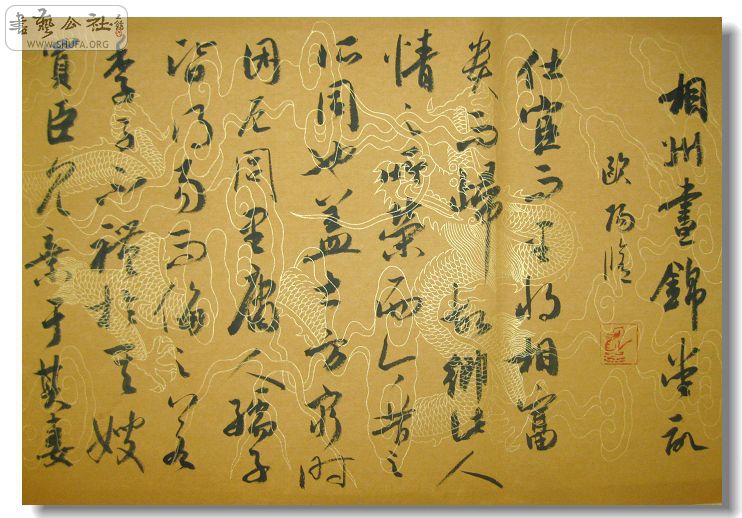 書藝公社
WWW.SHUFA.ORG
相州晝錦堂記
歐陽脩
仕宦而至將相富
貴而歸故鄉此人
情之所榮而今昔之
所同也蓋士方窮時
困厄閭里庸人孺子
皆得易而侮之若
季子不禮於其嫂
買臣見棄于其妻